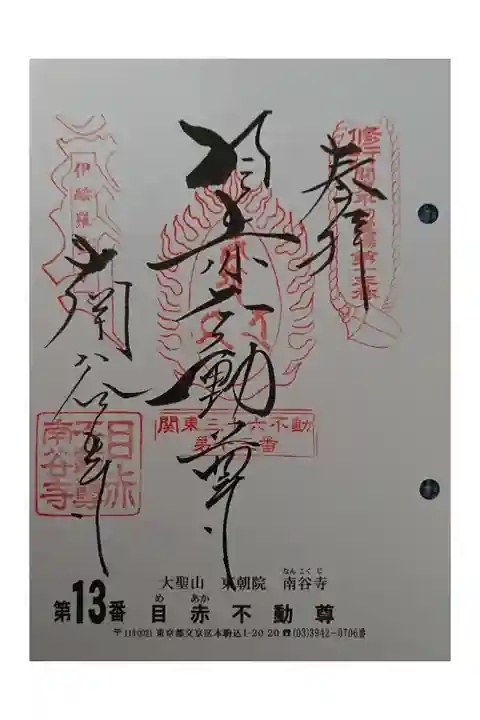 奉拝
目赤不動尊
南谷寺
伊𫞂羅
関東三十六不動
第十三番
目赤
不動尊
南谷寺
なんこくじ
大聖山 東朝院 南谷寺
め あか
第13番 目赤不動尊
東京都文京区本駒込1-20-20 ☎(03)3942-0706番